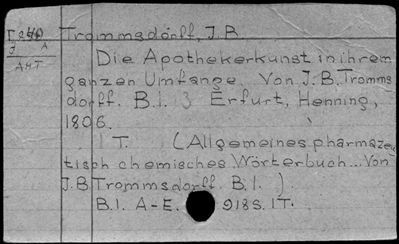 Trommsdorff, J. B.
J A
AHT
Die Apothekerkunst in ihrem
ganzen Umfange. Von J. B. Tromms
dorff. B. 1. 3 Erfurt, Henning,
1806.
1 T. (Allgemeines pharmazeu
tisch chemisches Wörterbuch... Von
J. B Trommsdorff. B. 1. ).
B. 1. A-E. 918 S. 1 T.